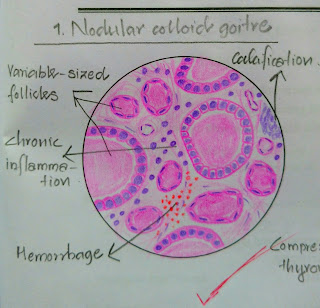 1. Nodular colloid goitre
Variable-sized
follicles
Calcification.
Chronic
inflamma-
tion
Hemorrhage
Compre
thyro